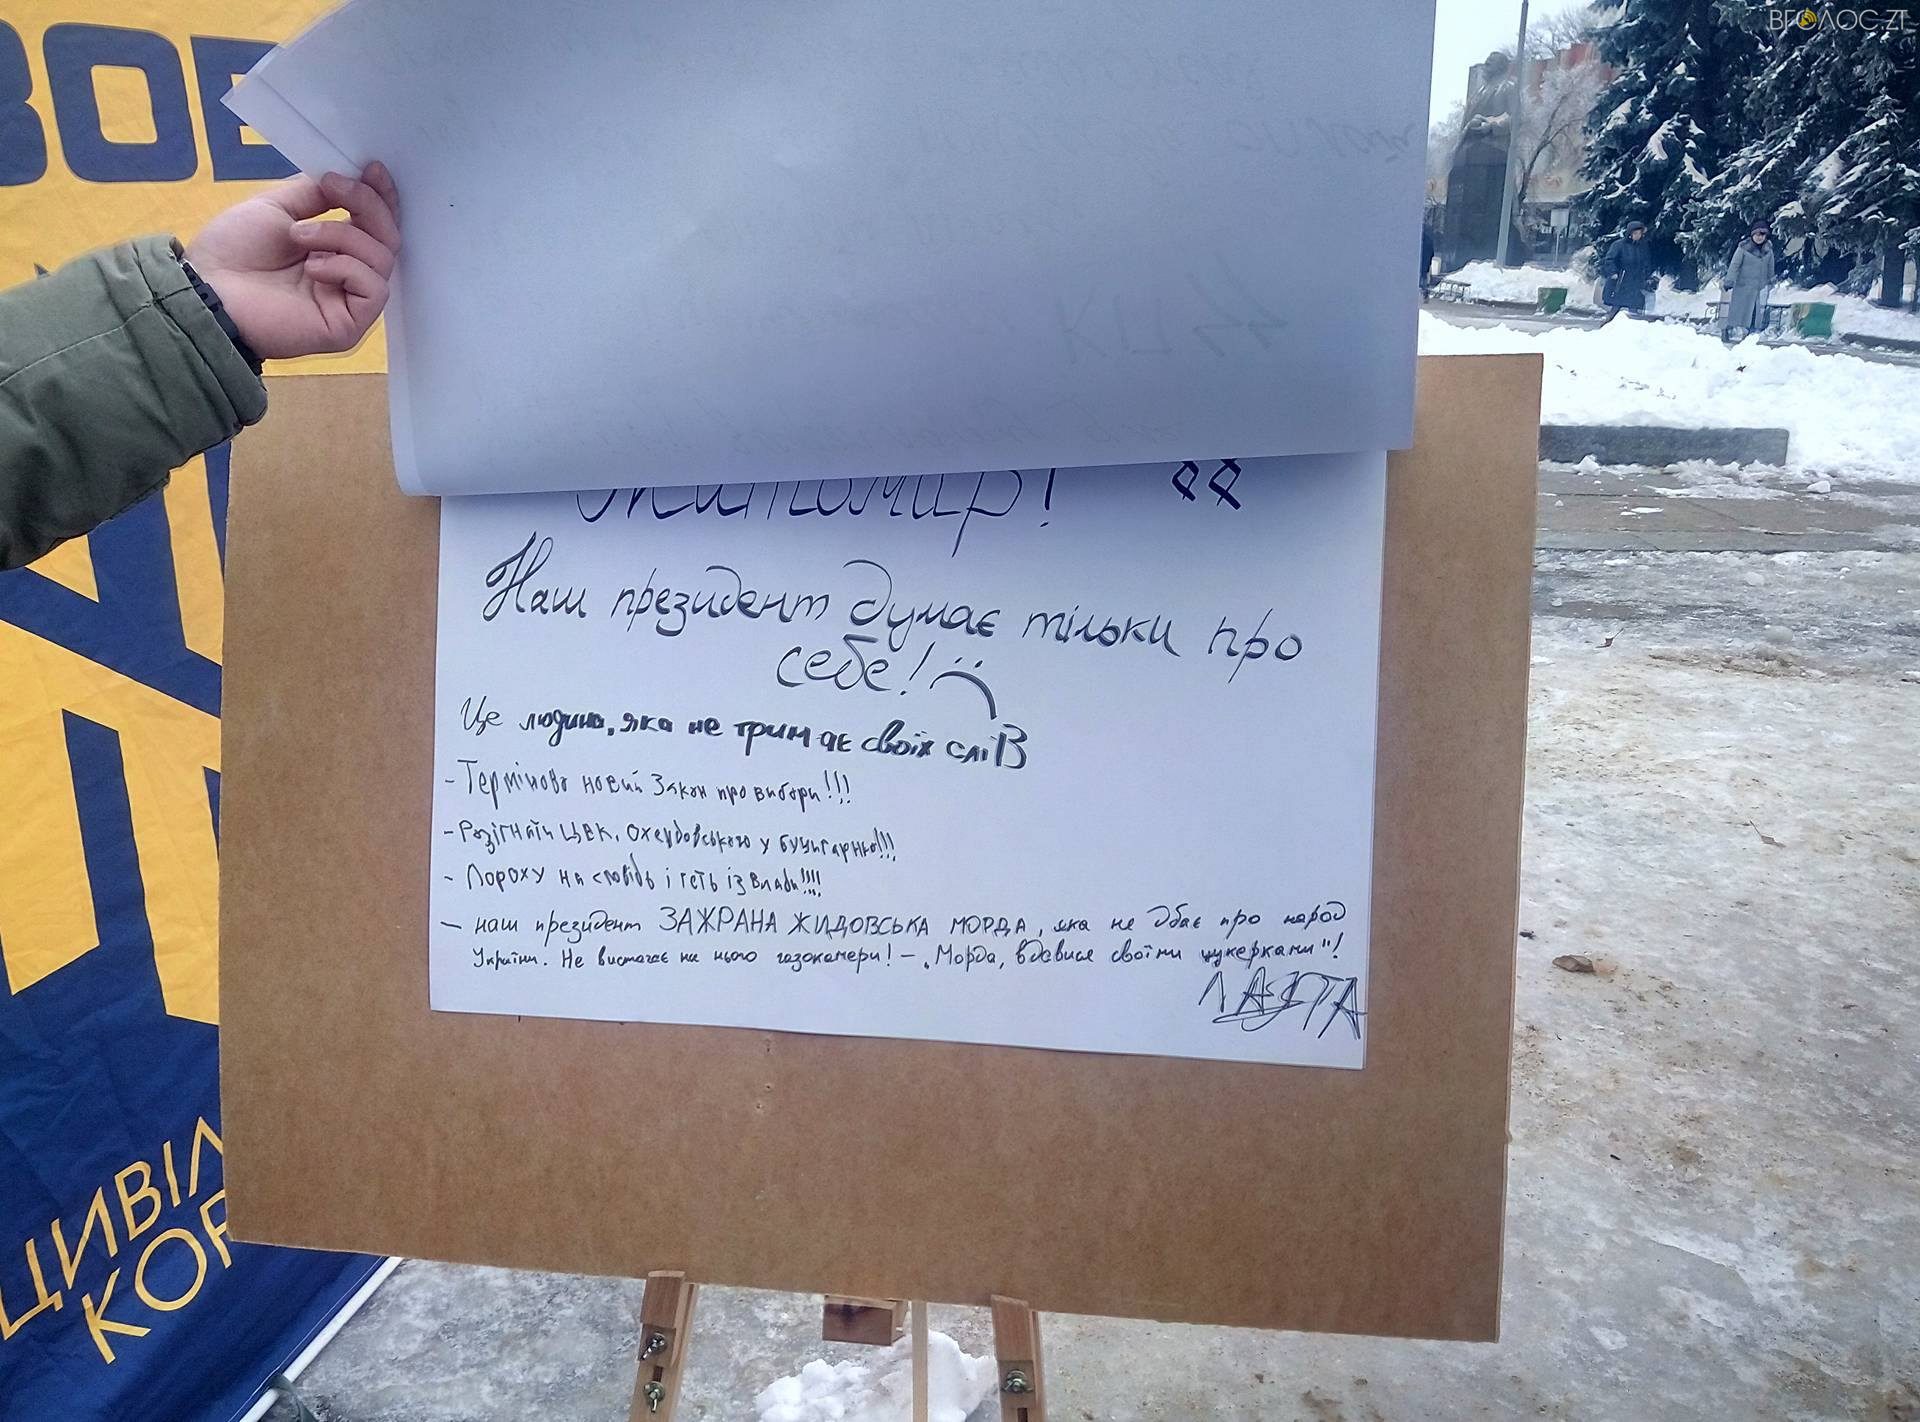 ВГОЛОС.ZT
ЦИВІЛ
КОР
Житомир!
Наш президент думає тільки про
себе!
Це людина, яка не тримає своїх слів
- Терміново новий Закон про вибори!!!
- Розігнати ЦВК, Охендовського у буцигарню!!!
- Пороху на сповідь і геть із влади!!!!
- наш президент ЗАЖРАНА ЖИДОВСЬКА МОРДА, яка не дбає про народ
України. Не вистачає на нього газокамери! - "Морда, вдавися своїми цукерками"!